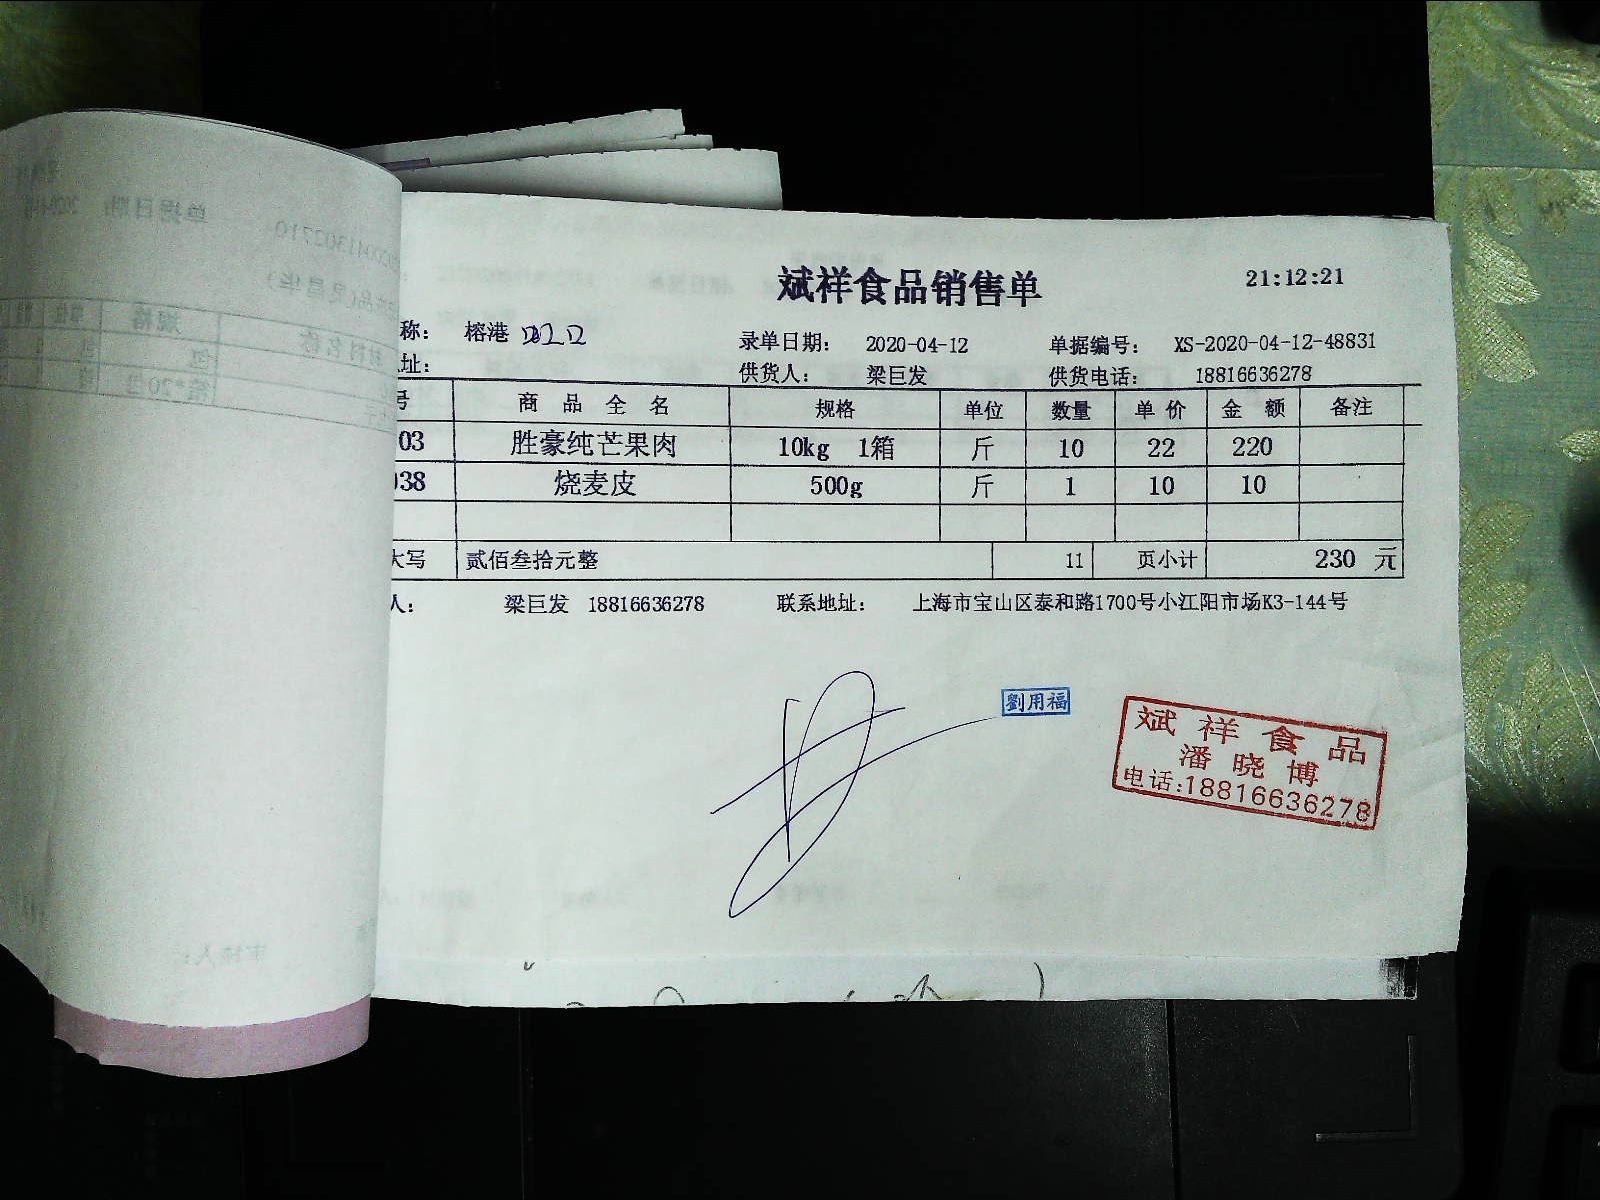 斌祥食品销售单
21:12:21
称： 榕港
录单日期： 2020-04-12 单据编号： XS-2020-04-12-48831
址： 供货人： 梁巨发 供货电话： 18816636278
号 商品全名 规格 单位 数量 单价 金额 备注
03 胜豪纯芒果肉 10kg 1箱 斤 10 22 220
038 烧麦皮 500g 斤 1 10 10
大写 贰佰叁拾元整 11 页小计 230 元
人： 梁巨发 18816636278 联系地址： 上海市宝山区泰和路1700号小江阳市场K3-144号
劉用福
斌祥食品
潘晓博
电话:18816636278